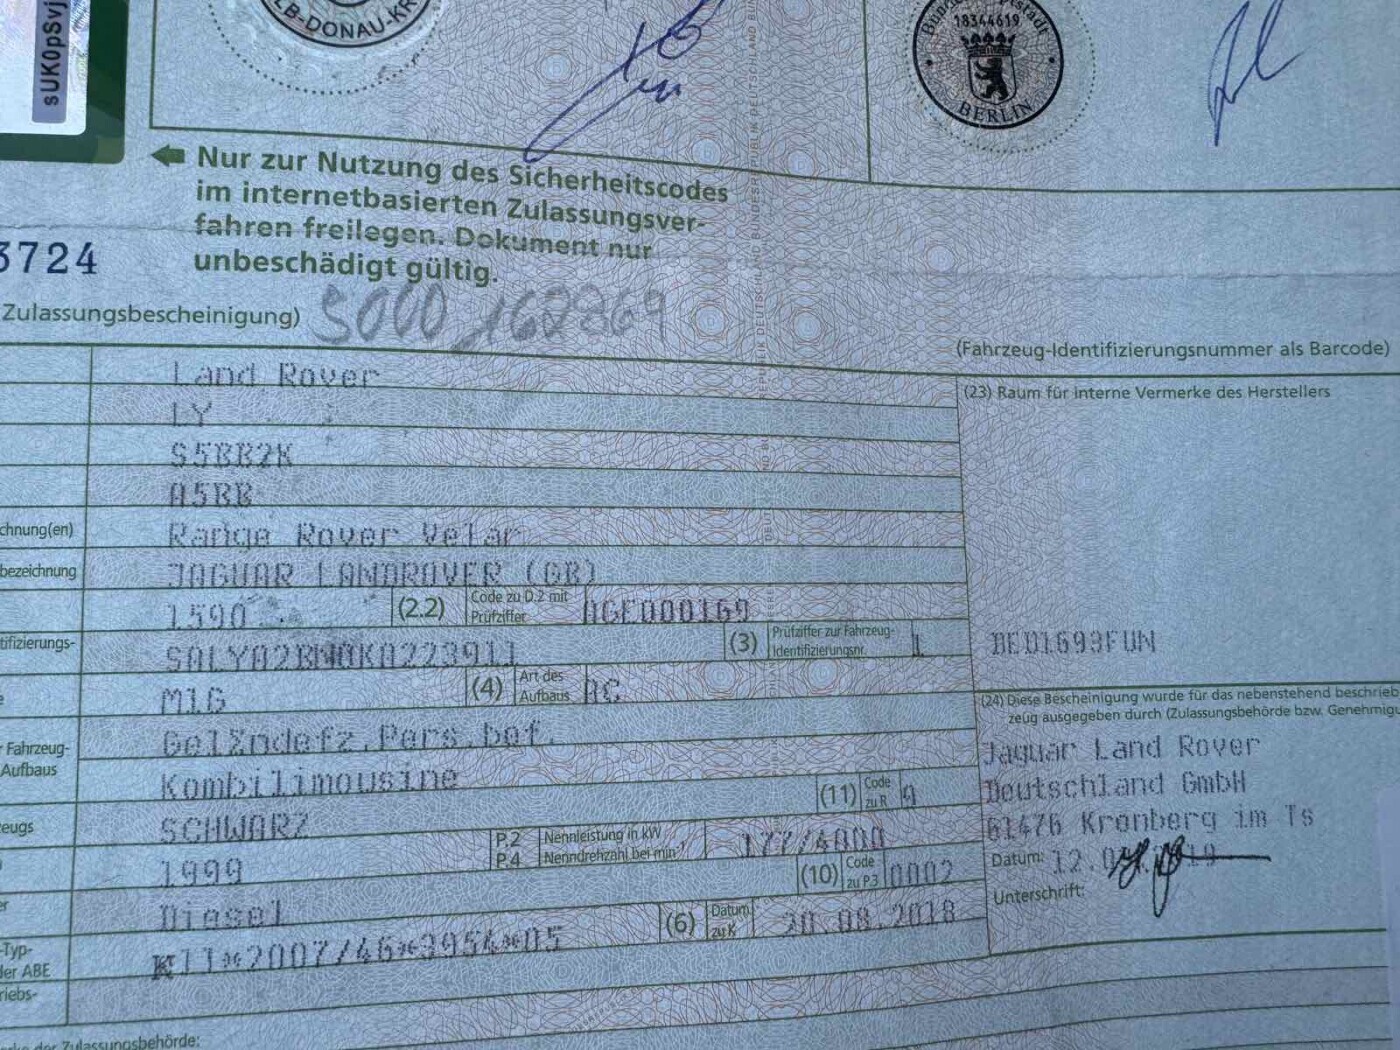 sUK0pSvj
LB-DONAU-KR
18344619
BERLIN
Nur zur Nutzung des Sicherheitscodes
im internetbasierten Zulassungsver-
fahren freilegen. Dokument nur
unbeschädigt gültig.
3724
Zulassungsbescheinigung)
5000 160869
(Fahrzeug-Identifizierungsnummer als Barcode)
Land Rover
(23) Raum für interne Vermerke des Herstellers
LY
S5BB2K
A5BB
chnung(en) Range Rover Velar
bezeichnung JAGUAR LANDROVER (GB)
1590 (2.2) Code zu D.2 mit Prüfziffer AGE000169
tifizierungs- SALYA2BN0KA223911 (3) Prüfziffer zur Fahrzeug-Identifizierungsnr. 1
DE01693FUN
M1G (4) Art des Aufbaus AC
(24) Diese Bescheinigung wurde für das nebenstehend beschrieb
zeug ausgegeben durch (Zulassungsbehörde bzw. Genehmigu
Fahrzeug- Geländefz.Pers.bef.
Aufbaus Kombilimousine
(11) Code zu R 9
Jaguar Land Rover
Deutschland GmbH
61476 Kronberg im Ts
eugs SCHWARZ
1999 P.2 P.4 Nennleistung in kW Nenndrehzahl bei min-1 177/4000
(10) Code zu P.3 0002
Datum:
Unterschrift:
er Diesel
(6) Datum zu K 20.08.2018
-Typ- K11*2007/46*3954*05
der ABE
riebs-
erke der Zulassungsbehörde: